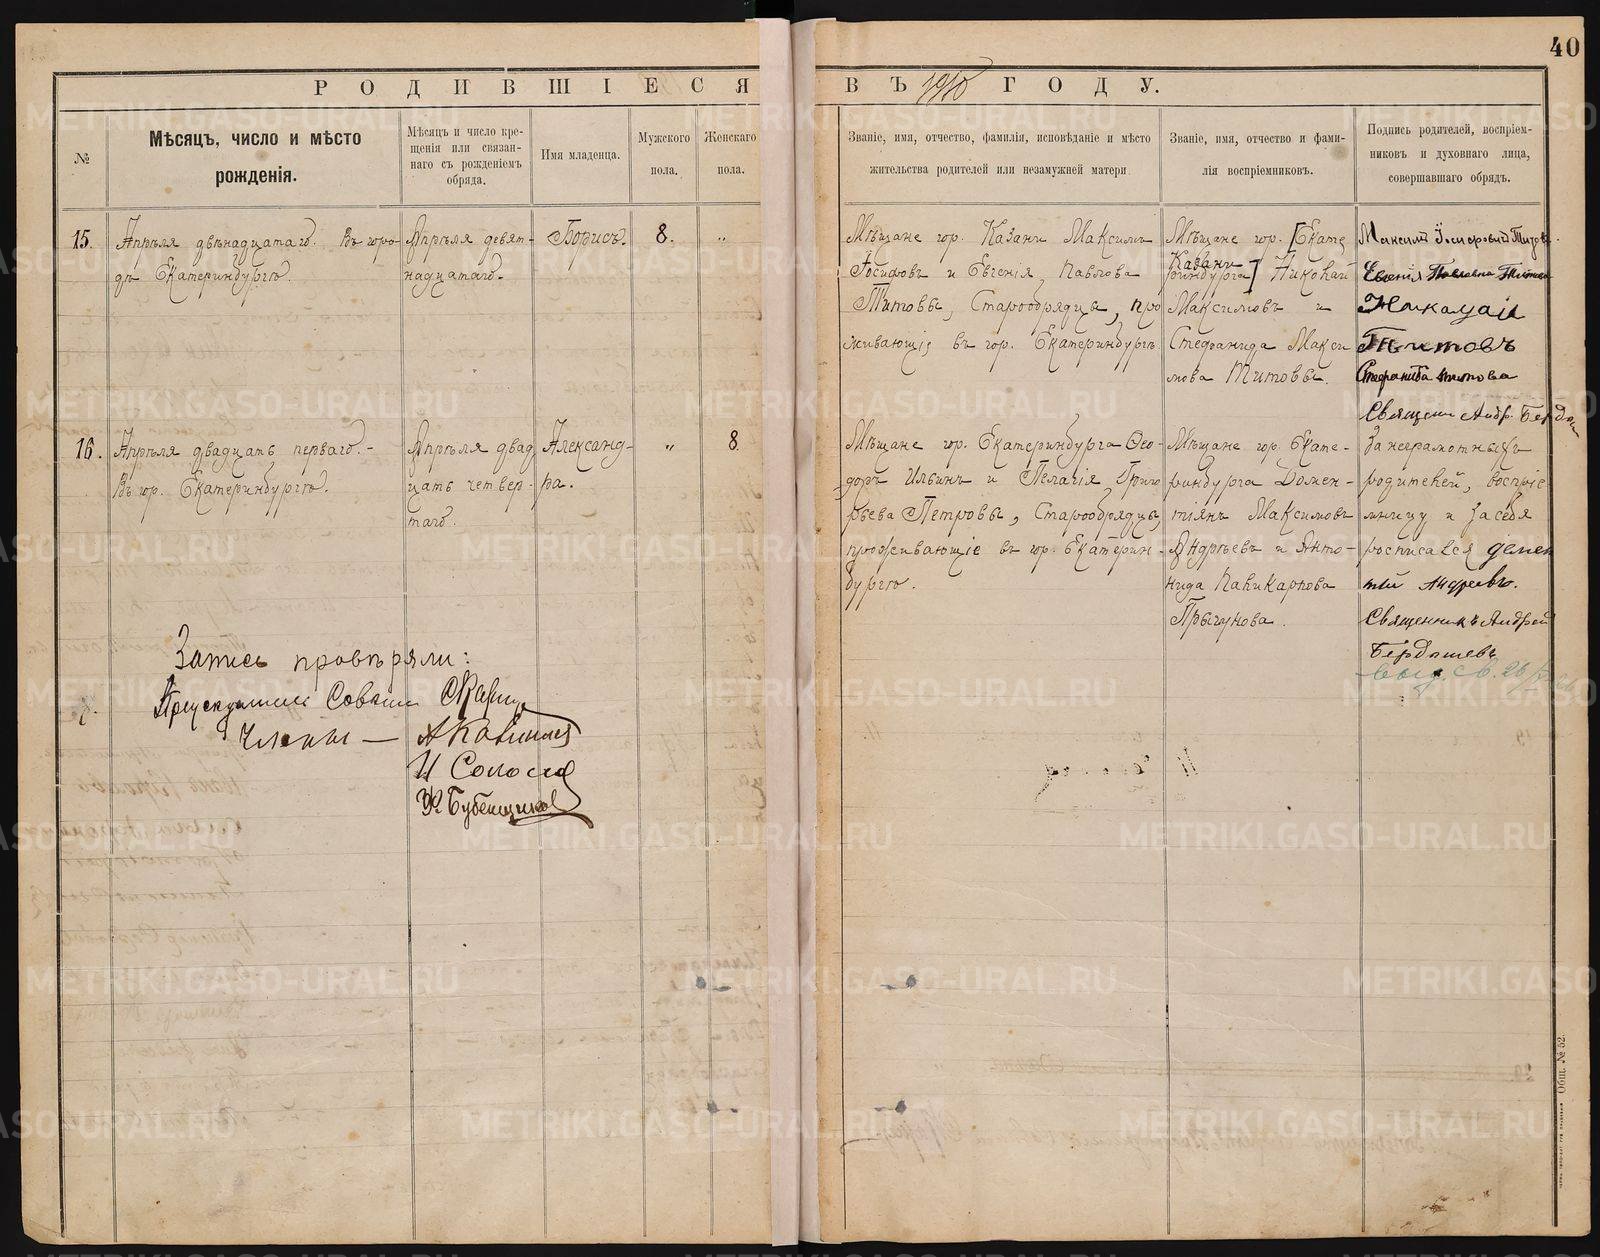 40
РОДИВШІЕСЯ ВЪ 1910 ГОДУ.
№
Мѣсяцъ, число и мѣсто
рожденія.
Мѣсяцъ и число кре-
щенія или связан-
наго съ рожденіемъ
обряда.
Имя младенца.
Мужского
пола.
Женскаго
пола.
Званіе, имя, отчество, фамилія, исповѣданіе и мѣсто
жительства родителей или незамужней матери
Званіе, имя, отчество и фами-
лія воспріемниковъ.
Подпись родителей, воспріем-
никовъ и духовнаго лица,
совершавшаго обрядъ.
15.
Апрѣля двѣнадцатаго. Въ горо-
дѣ Екатеринбургѣ.
Апрѣля девят-
надцатаго.
Борисъ.
8.
"
Мѣщане гор. Казани Максимъ
Іосифовъ и Евгенія Павлова
Титовы, Старообрядцы, про
живающіе въ гор. Екатеринбургѣ.
Мѣщане гор. [Екате
Казани
ринбурга] Николай
Максимовъ и
Стефанида Макси
мова Титовы.
Максимъ Іосифовичъ Титовъ
Евгенія Павловна Титова
Николай
Титовъ
Стефанида Титова
Священ. Андр. Берды
16.
Апрѣля двадцать перваго.-
Въ гор. Екатеринбургѣ.
Апрѣля двад
цать четвер-
таго.
Александ-
ра.
"
8.
Мѣщане гор. Екатеринбурга Ѳео-
доръ Ильинъ и Пелагія Григо
рьева Петровы, Старообрядцы,
проживающіе въ гор. Екатерин-
бургѣ.
Мѣщане гор. Екате-
ринбурга Домен-
тіянъ Максимовъ
Андреевъ и Анто-
нида Паликарпова
Прыгунова.
За неграмотныхъ
родителей, воспріе
мницу и за себя
росписался демен
тий Андреевъ.
Священникъ Андрей
Бердышевъ
Запись провѣряли:
Предсѣдатель Совѣта
Члены —
И Соколов
Бубенщиков
Общ. № 52.
METRIKI.GASO-URAL.RU